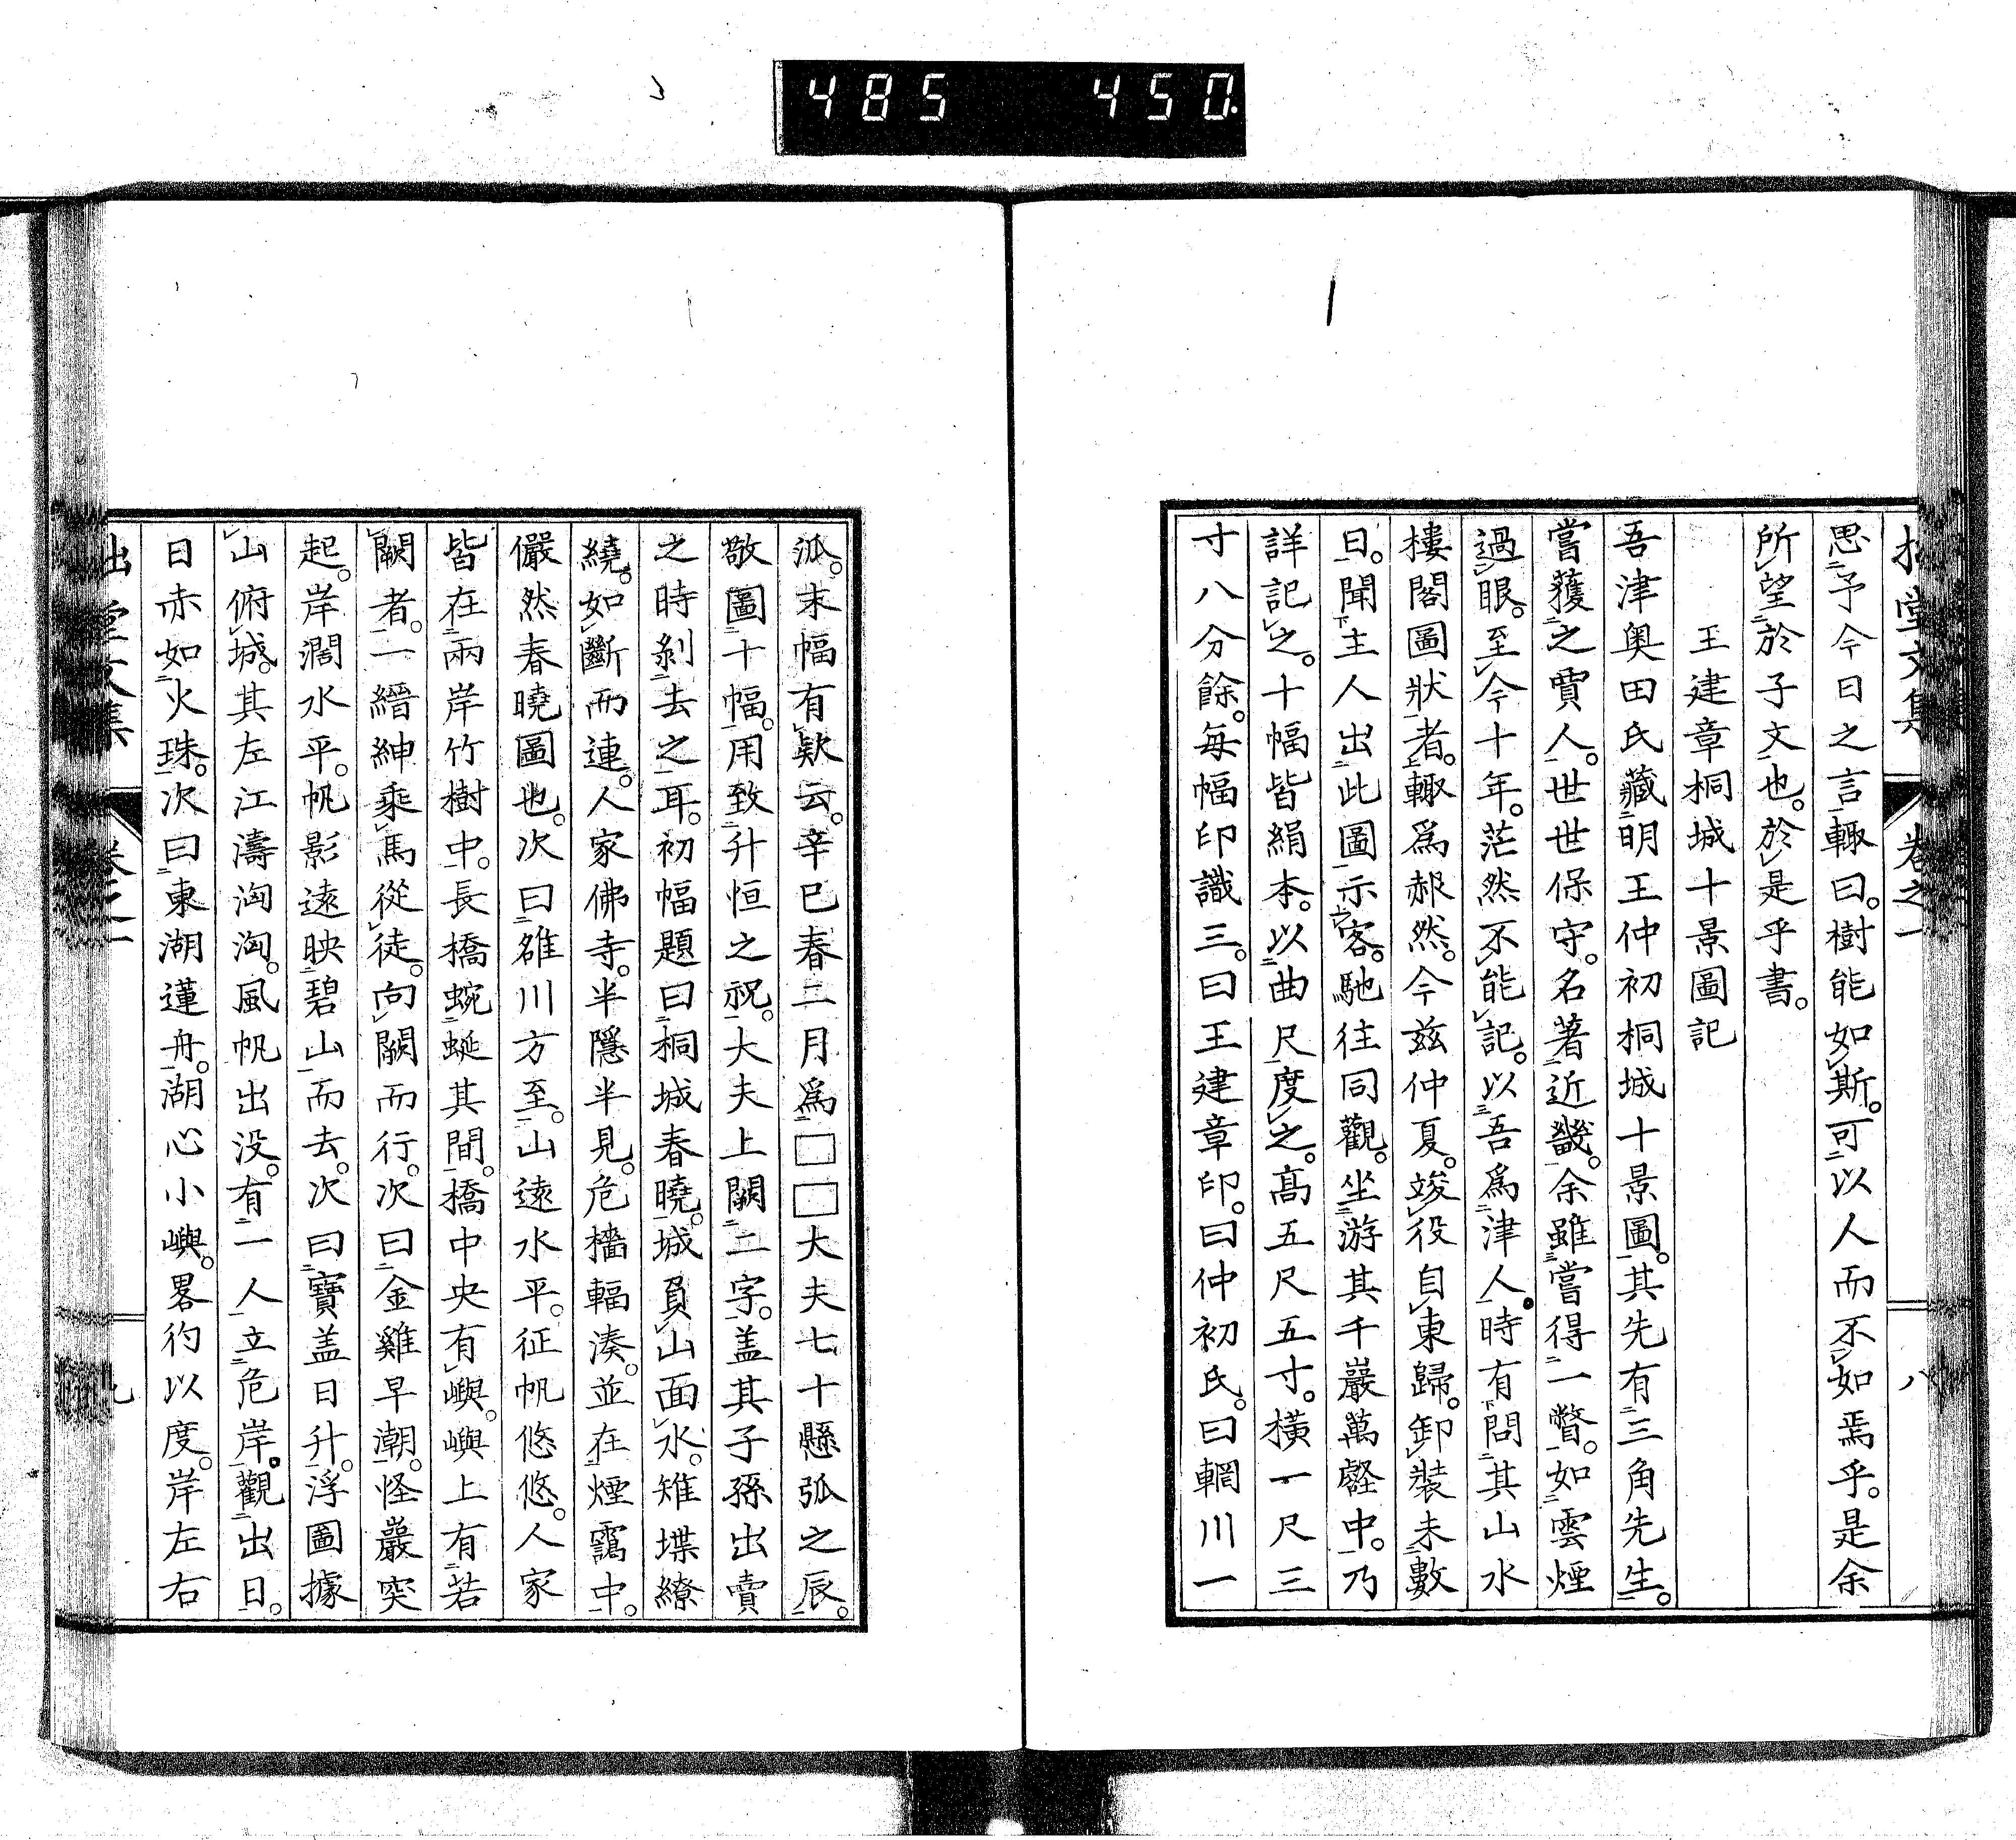 485 450.
拙堂文集 卷之一 八
思予今日之言輙曰。樹能如斯。可以人而不如焉乎。是余
所望於子文也。於是乎書。
王建章桐城十景圖記
吾津奥田氏藏明王仲初桐城十景圖。其先有三角先生。
嘗獲之賈人。世世保守。名著近畿。余雖嘗得一瞥。如雲煙
過眼。至今十年。茫然不能記。以吾爲津人。時有問其山水
樓閣圖狀者。輙爲赧然。今茲仲夏。竣役自東歸。卸裝未數
日。聞主人出此圖示客。馳往同觀。坐游其千巖萬壑中。乃
詳記之。十幅皆絹本。以曲尺度之。高五尺五寸。横一尺三
寸八分餘。毎幅印識三。曰王建章印。曰仲初氏。曰輞川一
派。末幅有款云。辛巳春二月爲□□大夫七十懸弧之辰。
敬圖十幅。用致升恒之祝。大夫上闕二字。盖其子孫出賣
之時剝去之耳。初幅題曰桐城春曉。城負山面水。雉堞繚
繞。如斷而連。人家佛寺。半隱半見。危檣輻湊。並在煙靄中。
儼然春曉圖也。次曰雒川方至。山遠水平。征帆悠悠。人家
皆在兩岸竹樹中。長橋蜿蜒其間。橋中央有嶼。嶼上有若
闕者。二縉紳乘馬從徒。向闕而行。次曰金雞早潮。怪巖突
起。岸濶水平。帆影遠映碧山而去。次曰寶盖日升。浮圖據
山俯城。其左江濤洶洶。風帆出没。有一人立危岸。觀出日。
日赤如火珠。次曰東湖蓮舟。湖心小嶼。畧彴以度。岸左右
拙堂文集 卷之一 九